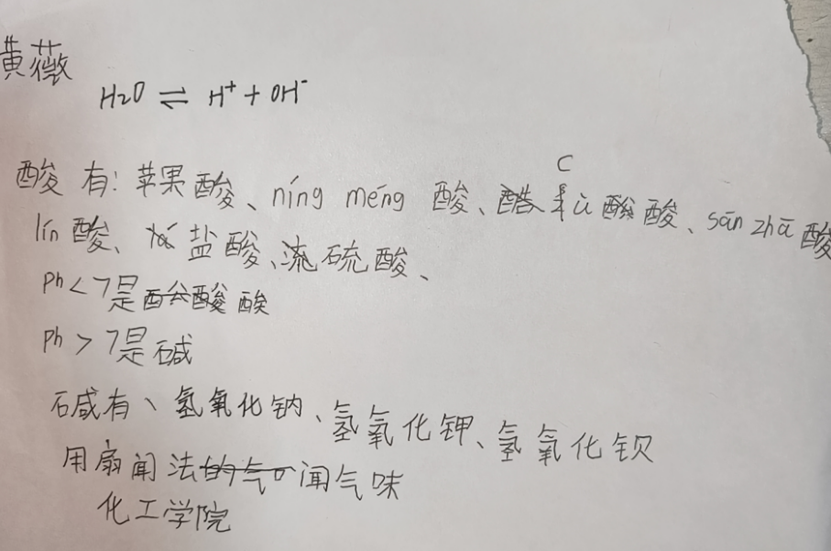 黄薇
H2O ⇌ H⁺ + OH⁻
酸有：苹果酸、níng méng 酸、cù 酸、sān zhā 酸
lín 酸、盐酸、硫酸、
Ph<7是酸
Ph>7是碱
碱有、氢氧化钠、氢氧化钾、氢氧化钡
用扇闻法闻气味
化工学院